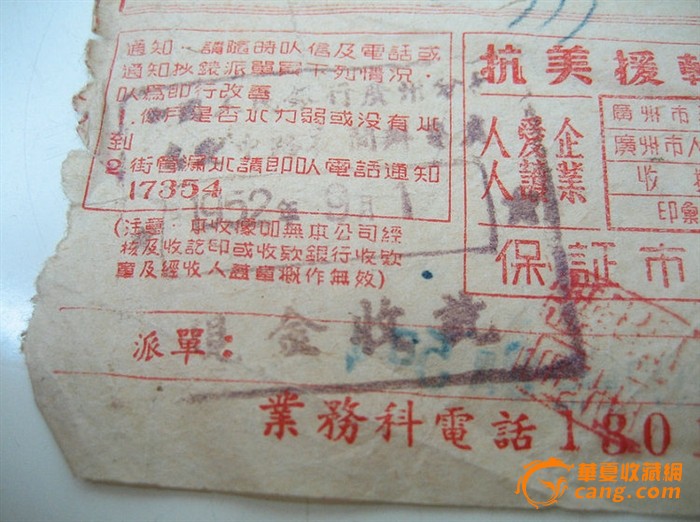 通知·請隨時以信及電話或
通知抄錶派單員下列情況·
以爲即行改善
1.你戶是否水力弱或没有水
到
2.街管漏水請即以電話通知
17354
1952年9月1
(注意:本收據如無本公司經
核及收訖印或收欵銀行收欵
章及經收人蓋章概作無效)
派單:
現金收訖
業務科電話1801
抗美援
人人愛護企業
廣州市
廣州市人
收
印象
保証市
華夏收藏網
cang.com